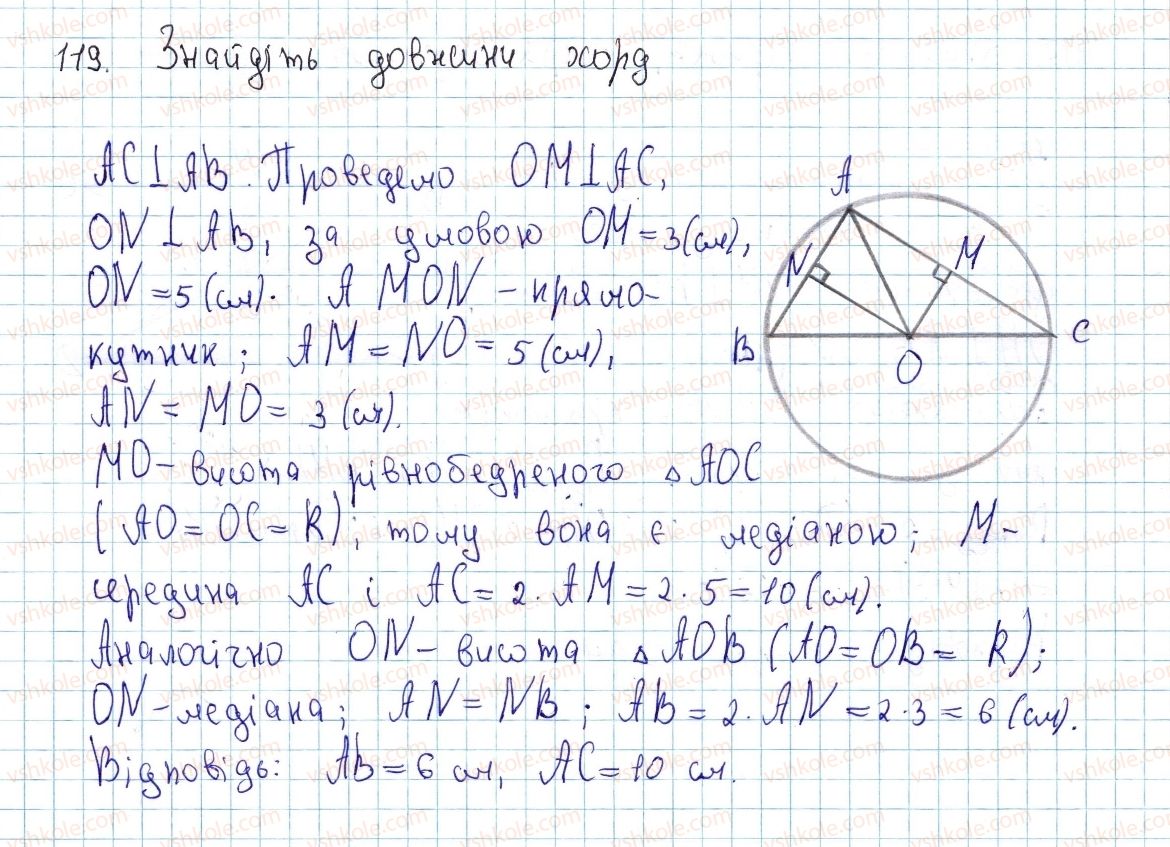 119. Знайдіть довжини хорд
AC⊥AB. Проведемо OM⊥AC,
ON⊥AB, за умовою OM=3(см),
ON=5(см). AMON – прямо-
кутник; AM=NO=5(см),
AN=MO=3(см).
MO – висота рівнобедреного △AOC
(AO=OC=R); тому вона є медіаною; M –
середина AC і AC=2·AM=2·5=10(см).
Аналогічно ON – висота △AOB (AO=OB=R);
ON – медіана; AN=NB; AB=2·AN=2·3=6(см).
Відповідь: AB=6 см, AC=10 см.
A
N
M
B
O
C
vshkole.com